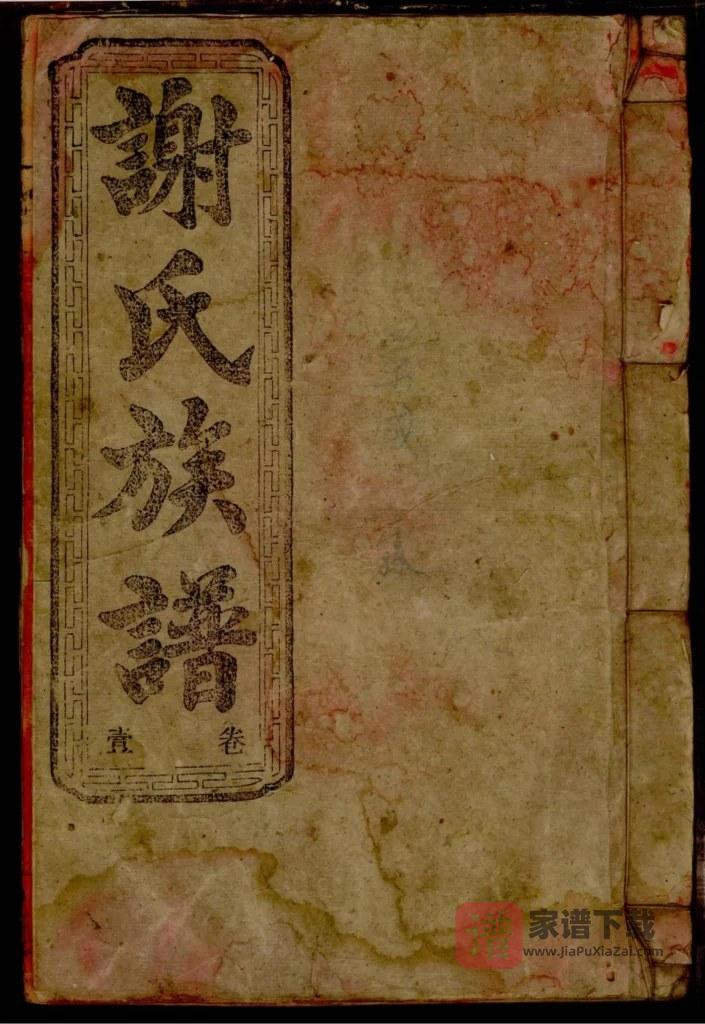 謝氏族譜
卷
譜
家谱下载
www.JiaPuXiaZai.com